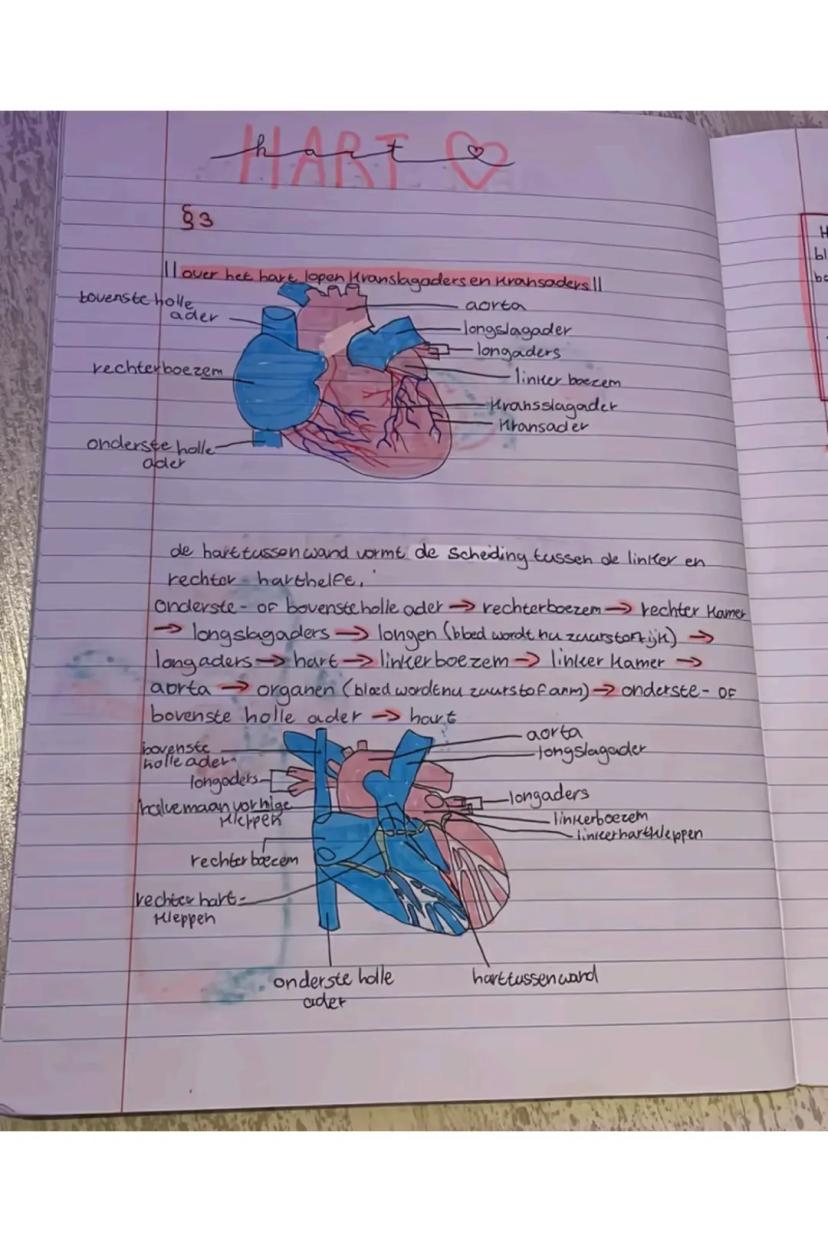 HART
hart
§3
|| over het hart lopen kranslagaders en kransaders ||
bovenste holle
ader
aorta
longslagader
longaders
rechterboezem
linker boezem
kransslagader
kransader
onderste holle
ader
de harttussenwand vormt de scheiding tussen de linker en
rechter harthelft.
onderste- of bovenste holle ader → rechterboezem → rechter kamer
→ longslagaders → longen (bloed wordt nu zuurstofrijk) →
longaders → hart → linkerboezem → linker kamer →
aorta → organen (bloed wordt nu zuurstofarm) → onderste- of
bovenste holle ader → hart
bovenste
holle ader
aorta
longslagader
longaders
halvemaanvormige
kleppen
longaders
linkerboezem
linkerhartkleppen
rechterboezem
rechter hart-
kleppen
onderste holle
ader
harttussenwand
H
bl